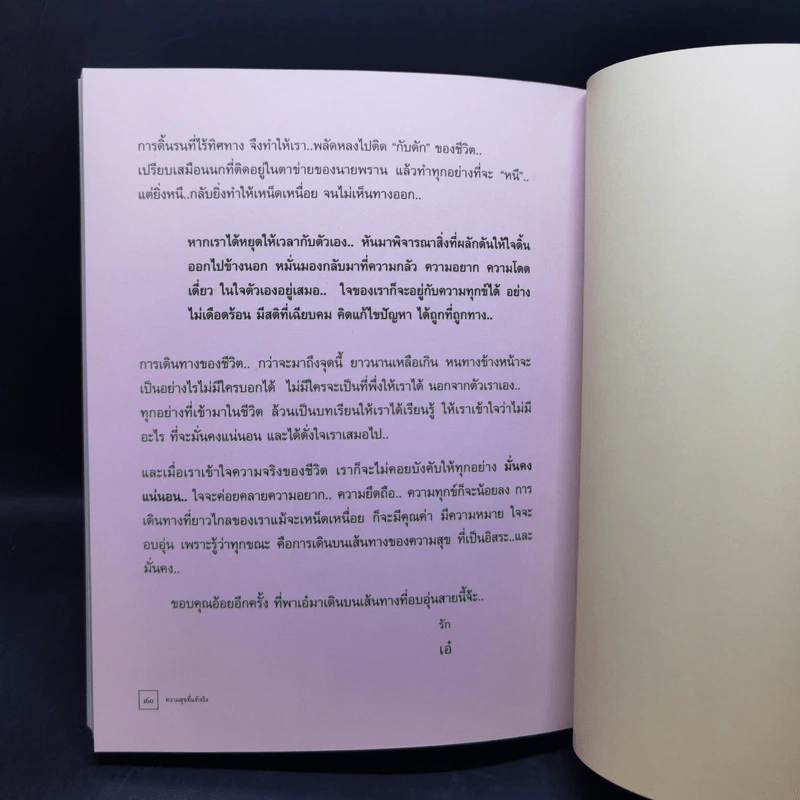 การดิ้นรนที่ไร้ทิศทาง จึงทำให้เรา..พลัดหลงไปติด “กับดัก” ของชีวิต..
เปรียบเสมือนนกที่ติดอยู่ในตาข่ายของนายพราน แล้วทำทุกอย่างที่จะ “หนี”..
แต่ยิ่งหนี..กลับยิ่งทำให้เหน็ดเหนื่อย จนไม่เห็นทางออก..
หากเราได้หยุดให้เวลากับตัวเอง.. หันมาพิจารณาสิ่งที่ผลักดันให้ใจดิ้น
ออกไปข้างนอก หมั่นมองกลับมาที่ความกลัว ความอยาก ความโดด
เดี่ยว ในใจตัวเองอยู่เสมอ.. ใจของเราก็จะอยู่กับความทุกข์ได้ อย่าง
ไม่เดือดร้อน มีสติที่เฉียบคม คิดแก้ไขปัญหา ได้ถูกที่ถูกทาง..
การเดินทางของชีวิต.. กว่าจะมาถึงจุดนี้ ยาวนานเหลือเกิน หนทางข้างหน้าจะ
เป็นอย่างไรไม่มีใครบอกได้ ไม่มีใครจะเป็นที่พึ่งให้เราได้ นอกจากตัวเราเอง..
ทุกอย่างที่เข้ามาในชีวิต ล้วนเป็นบทเรียนให้เราได้เรียนรู้ ให้เราเข้าใจว่าไม่มี
อะไร ที่จะมั่นคงแน่นอน และได้ดั่งใจเราเสมอไป..
และเมื่อเราเข้าใจความจริงของชีวิต เราก็จะไม่คอยบังคับให้ทุกอย่าง มั่นคง
แน่นอน.. ใจจะค่อยคลายความอยาก.. ความยึดถือ.. ความทุกข์ก็จะน้อยลง การ
เดินทางที่ยาวไกลของเราแม้จะเหน็ดเหนื่อย ก็จะมีคุณค่า มีความหมาย ใจจะ
อบอุ่น เพราะรู้ว่าทุกขณะ คือการเดินบนเส้นทางของความสุข ที่เป็นอิสระ..และ
มั่นคง..
ขอบคุณอ้อยอีกครั้ง ที่พาเอ๋มาเดินบนเส้นทางที่อบอุ่นสายนี้จ้ะ..
รัก
เอ๋
160 ความสุขที่แท้จริง